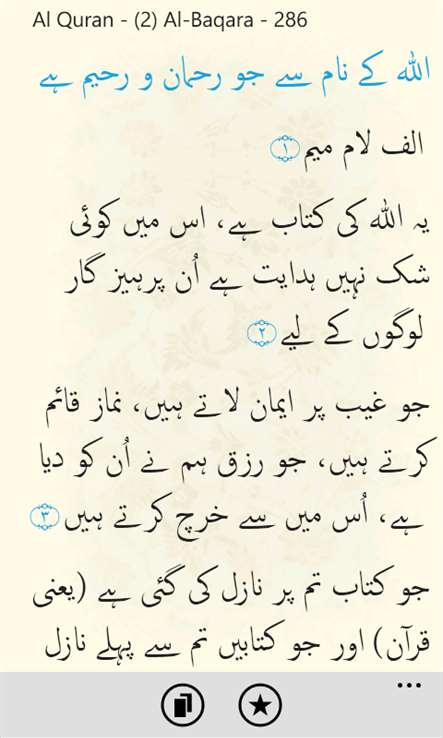 Al Quran - (2) Al-Baqara - 286
اللہ کے نام سے جو رحمان و رحیم ہے
الف لام میم ۱
یہ اللہ کی کتاب ہے، اس میں کوئی
شک نہیں ہدایت ہے اُن پرہیز گار
لوگوں کے لیے ۲
جو غیب پر ایمان لاتے ہیں، نماز قائم
کرتے ہیں، جو رزق ہم نے اُن کو دیا
ہے، اُس میں سے خرچ کرتے ہیں ۳
جو کتاب تم پر نازل کی گئی ہے (یعنی
قرآن) اور جو کتابیں تم سے پہلے نازل